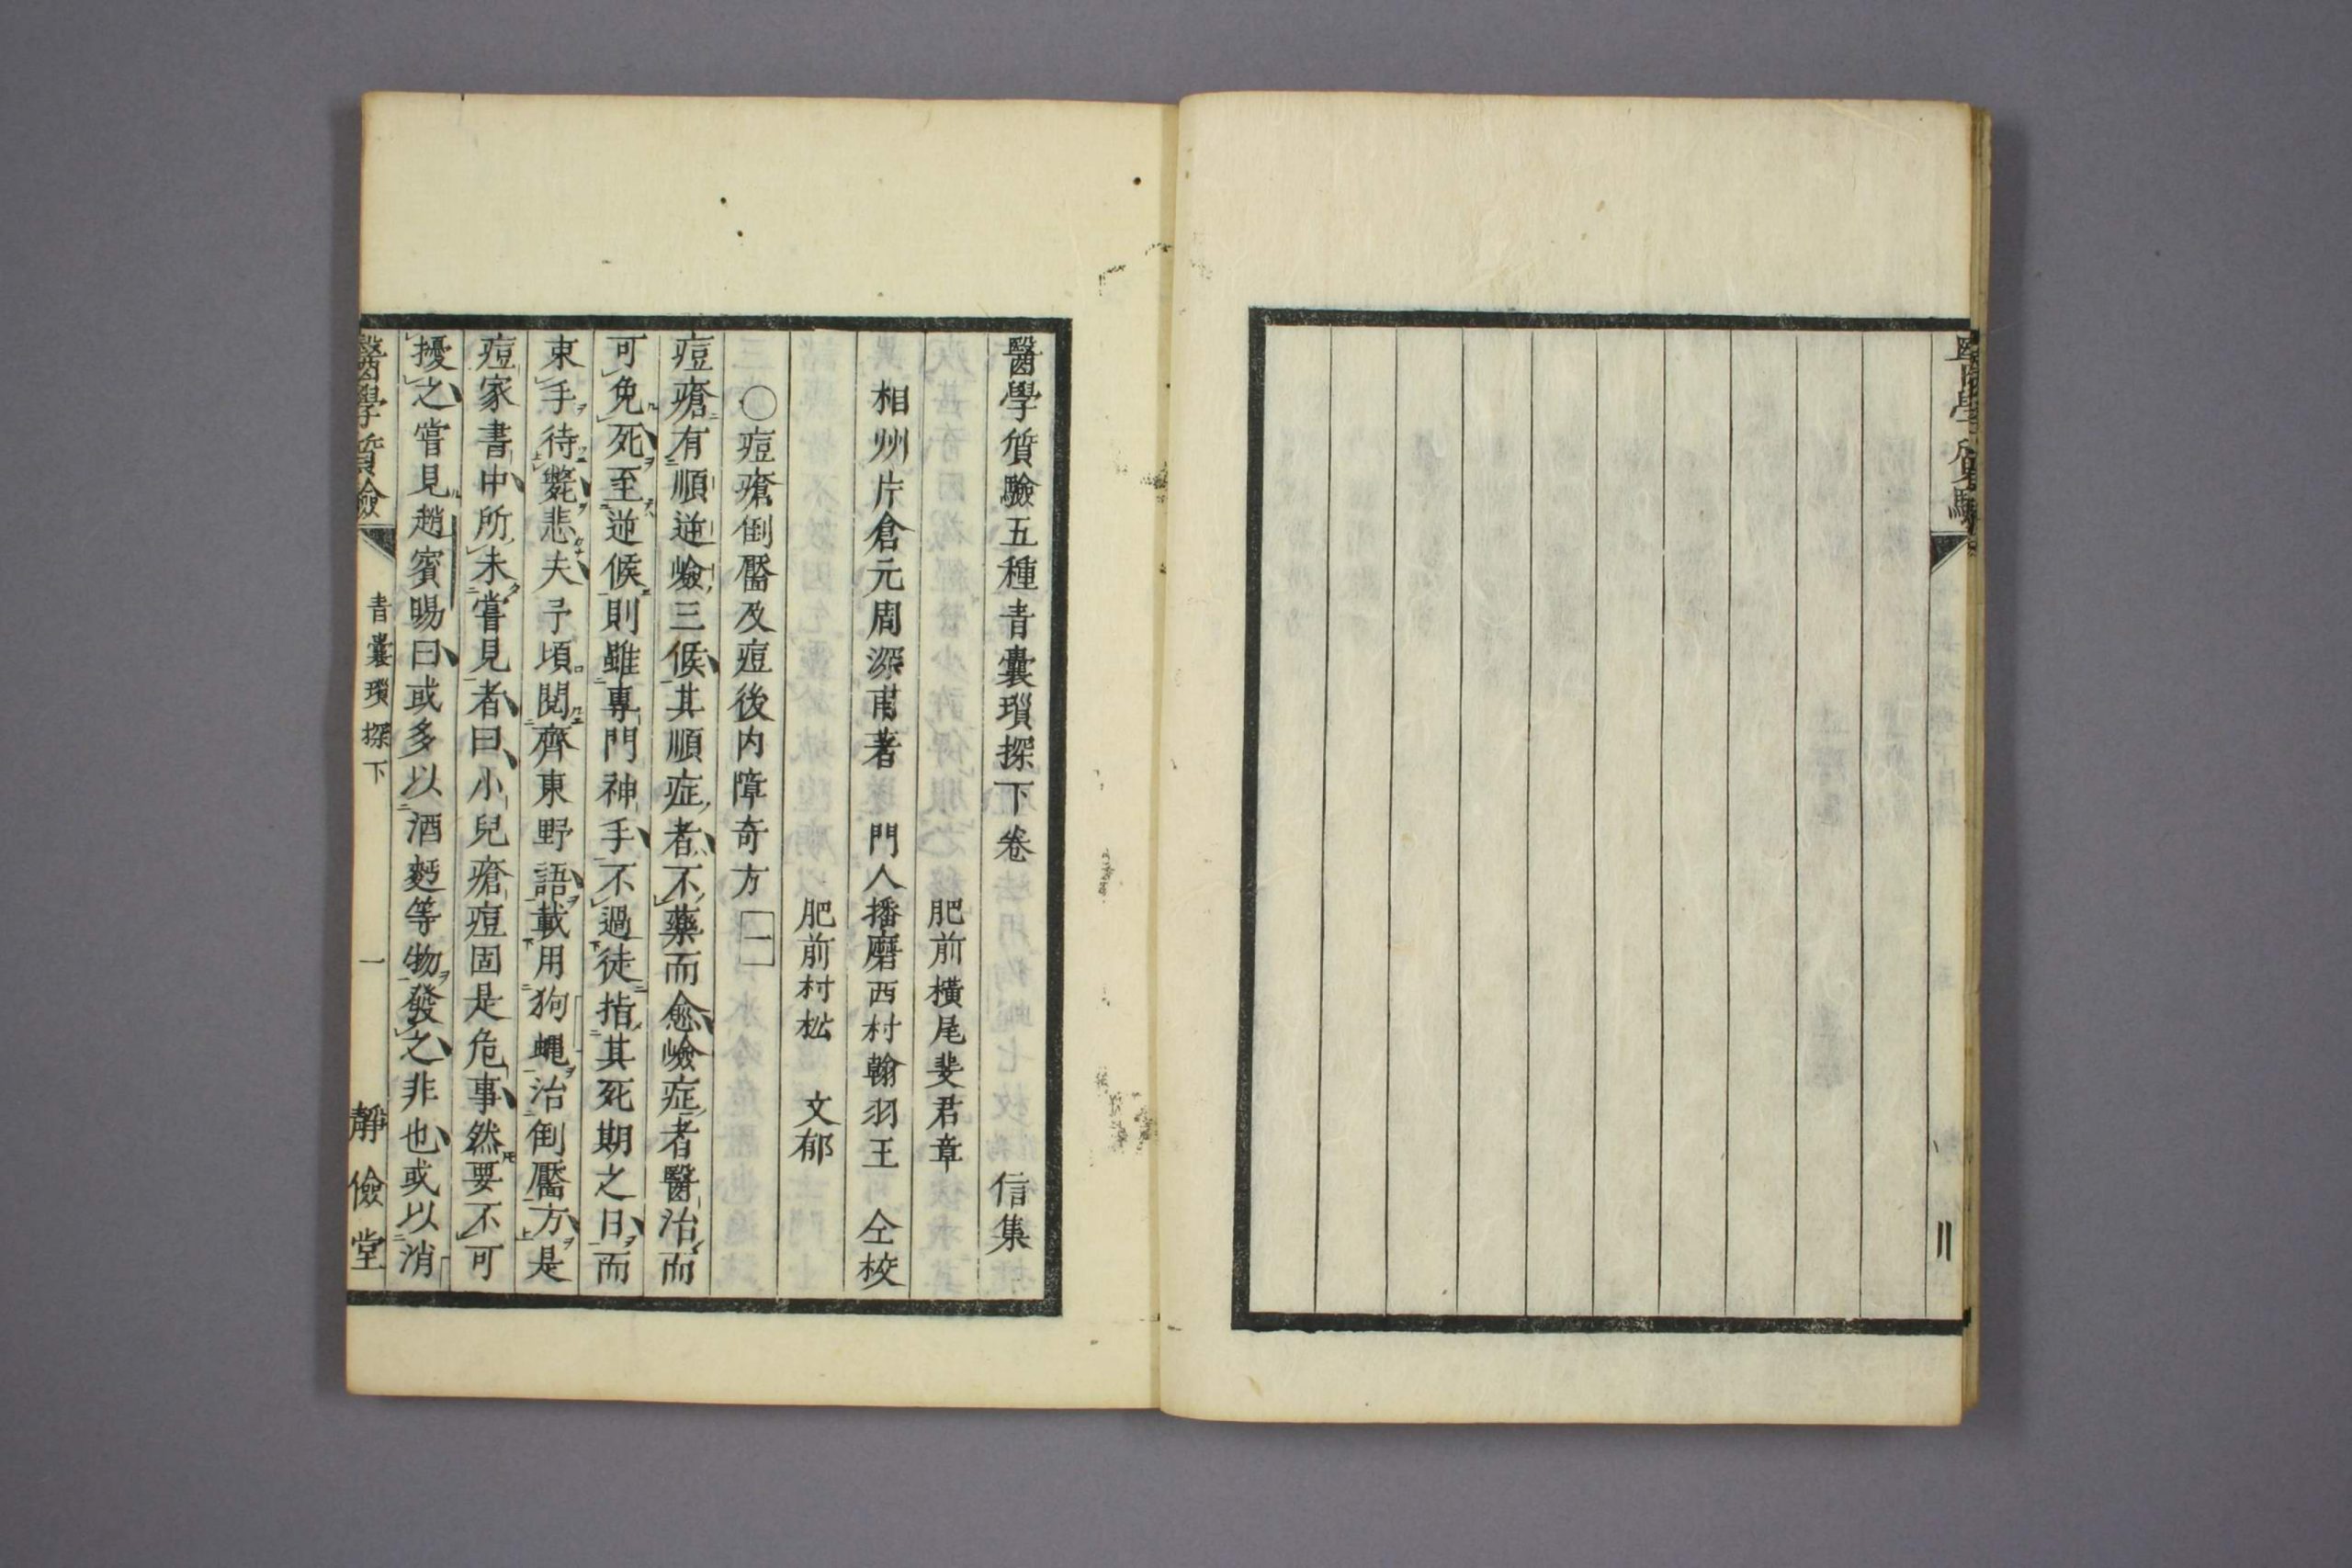 醫學質驗
〢
醫學質驗五種青囊瑣探下卷 信集
肥前橫尾斐君章
相州片倉元周深甫著 門人播磨西村翰羽王 仝校
肥前村松 文郁
〇痘瘡倒靨及痘後内障奇方 一
痘瘡有順逆嶮三候其順症者不藥而愈嶮症者醫治而
可免死至逆候則雖專門神手不過徒指其死期之日而
束手待斃悲夫予頃閱齊東野語載用狗蠅治倒靨方是
痘家書中所未嘗見者曰小兒瘡痘固是危事然要不可
擾之嘗見趙賓暘曰或多以酒麪等物發之非也或以消
醫學質驗 青囊瑣探下 一 靜儉堂